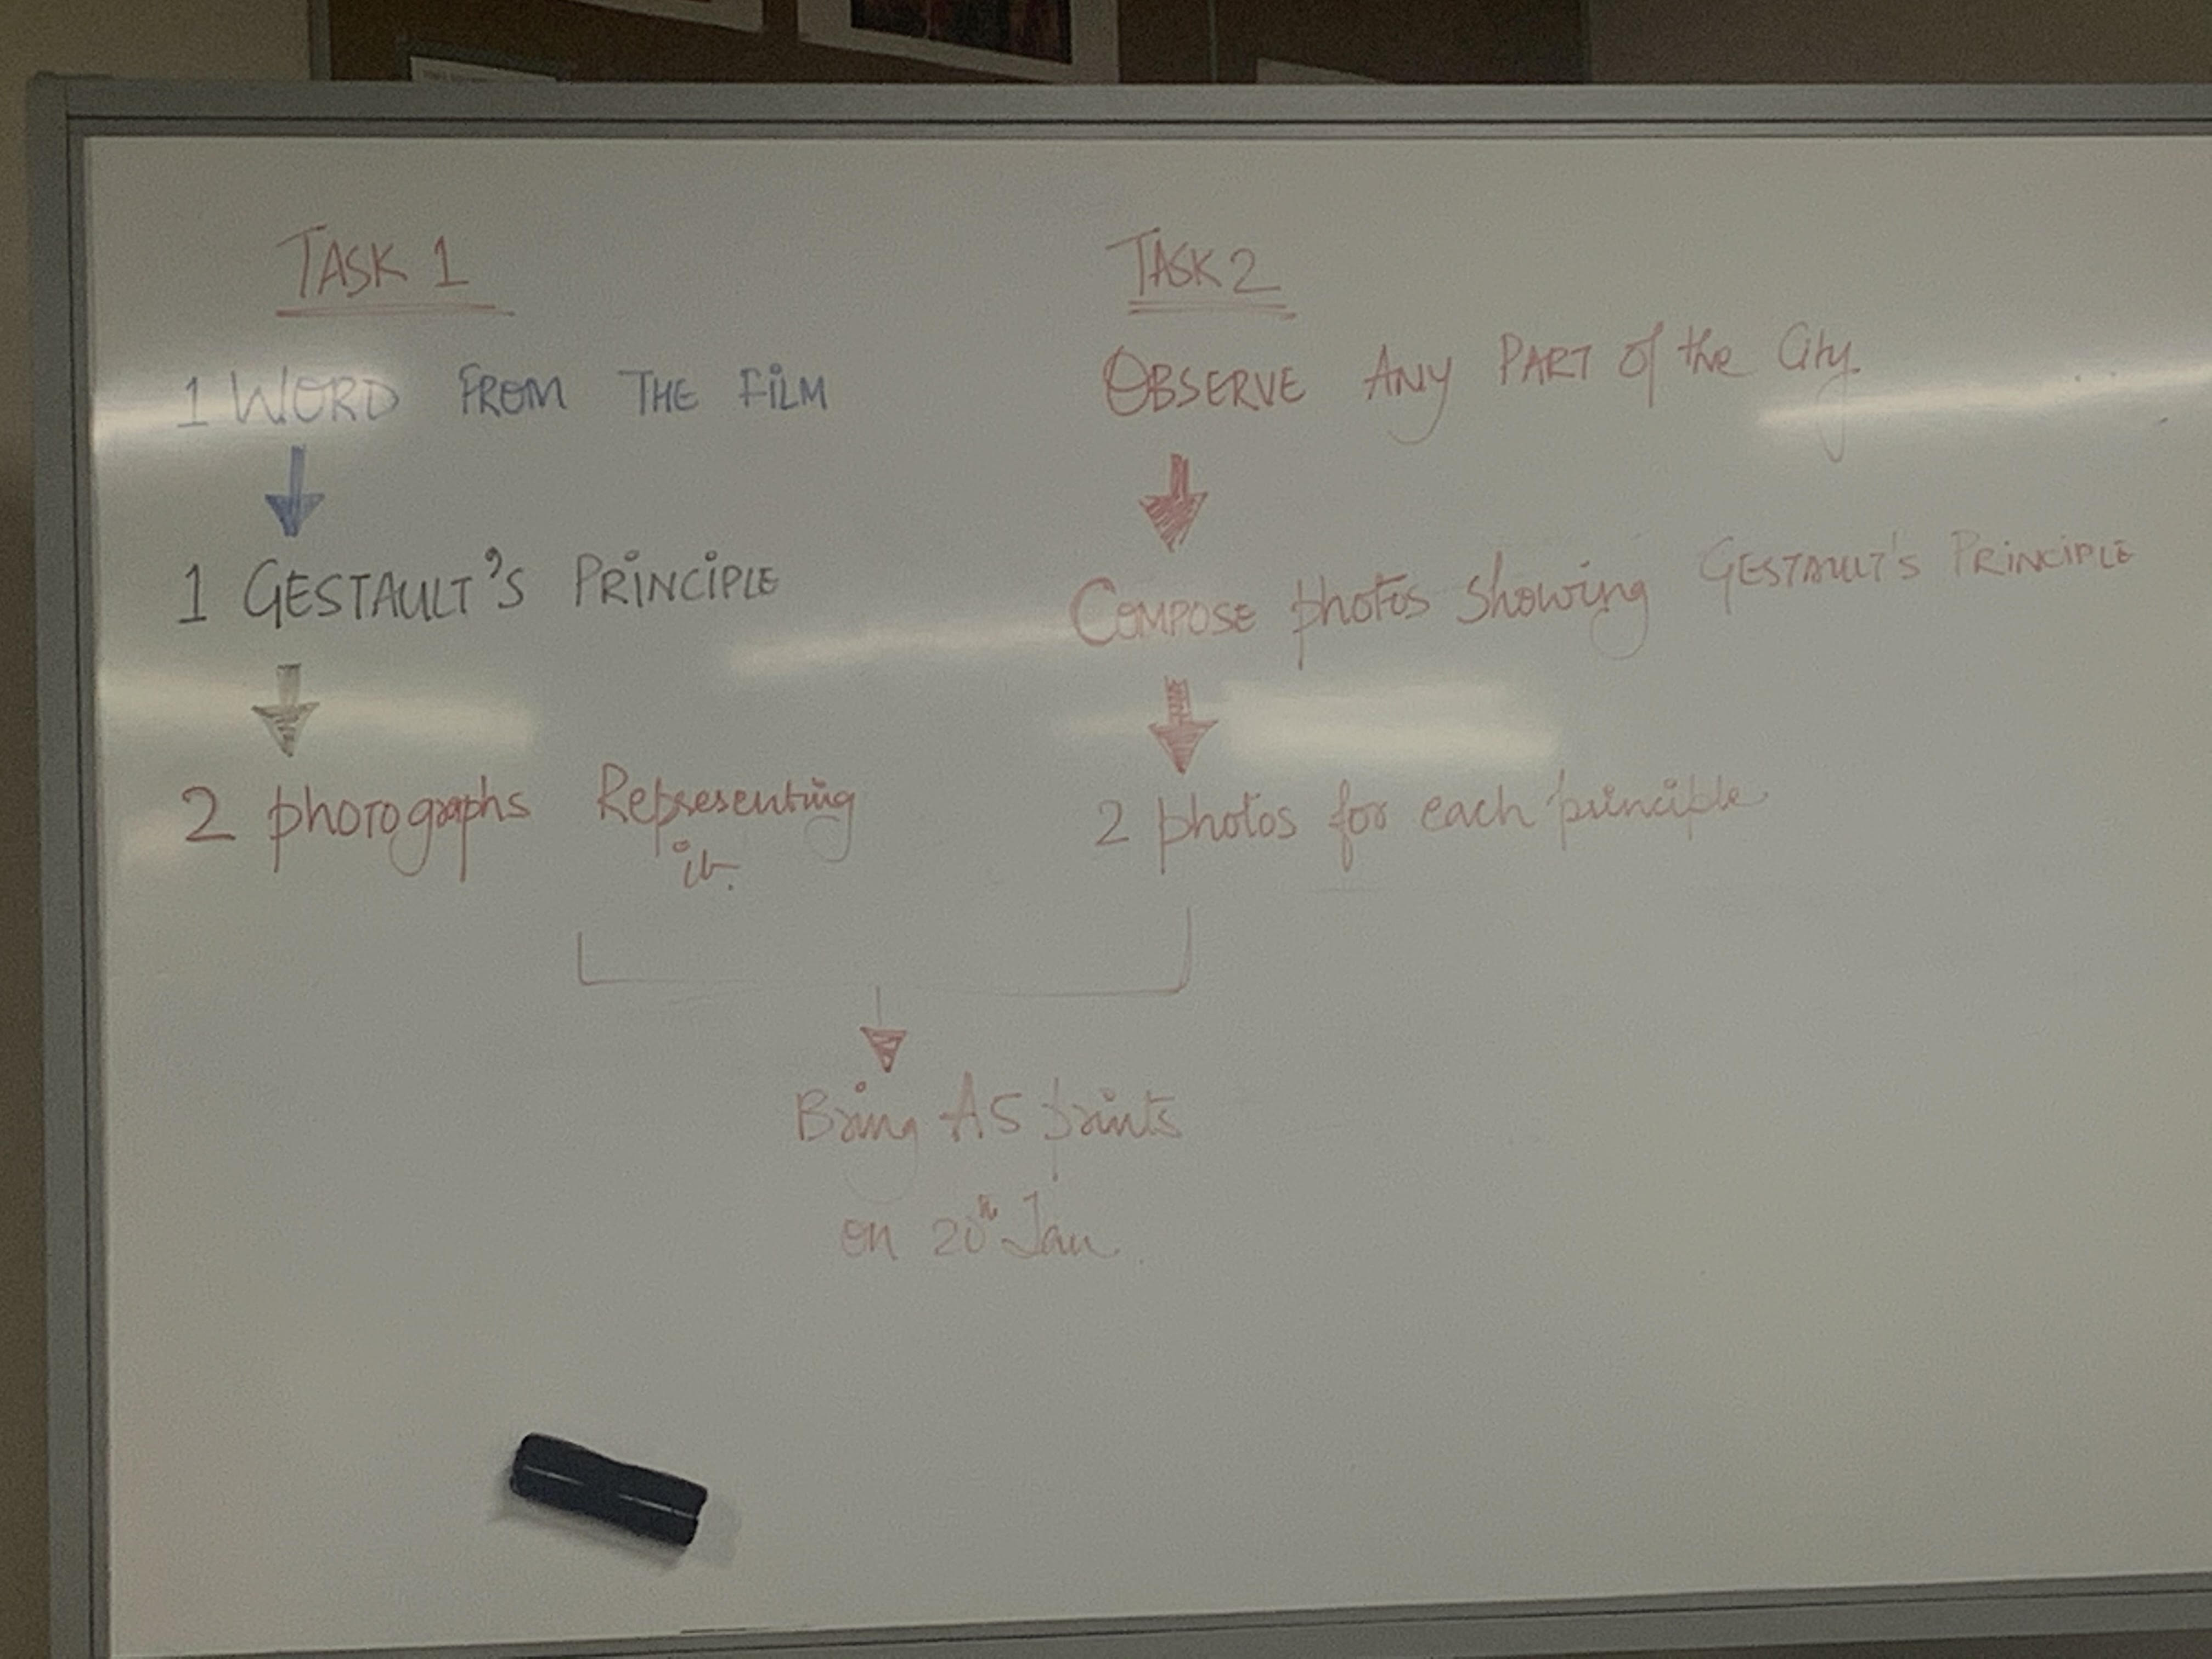 TASK 1
1 WORD FROM THE FILM
1 GESTAULT'S PRINCIPLE
2 photographs Representing
it.
TASK 2
OBSERVE ANY PART of the City.
COMPOSE photos showing GESTAULT'S PRINCIPLE
2 photos for each principle
Bring A5 prints
on 20th Jan.